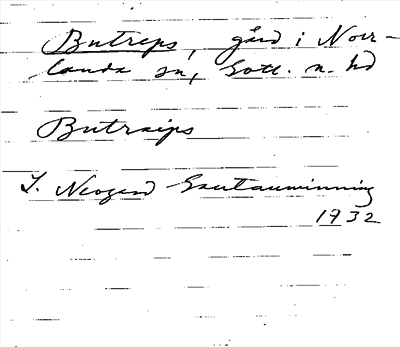 Butreps, gård i Norr-
landa sn, Gotl. n. hd
Butraips
T. Neogard Gautauminning
1932